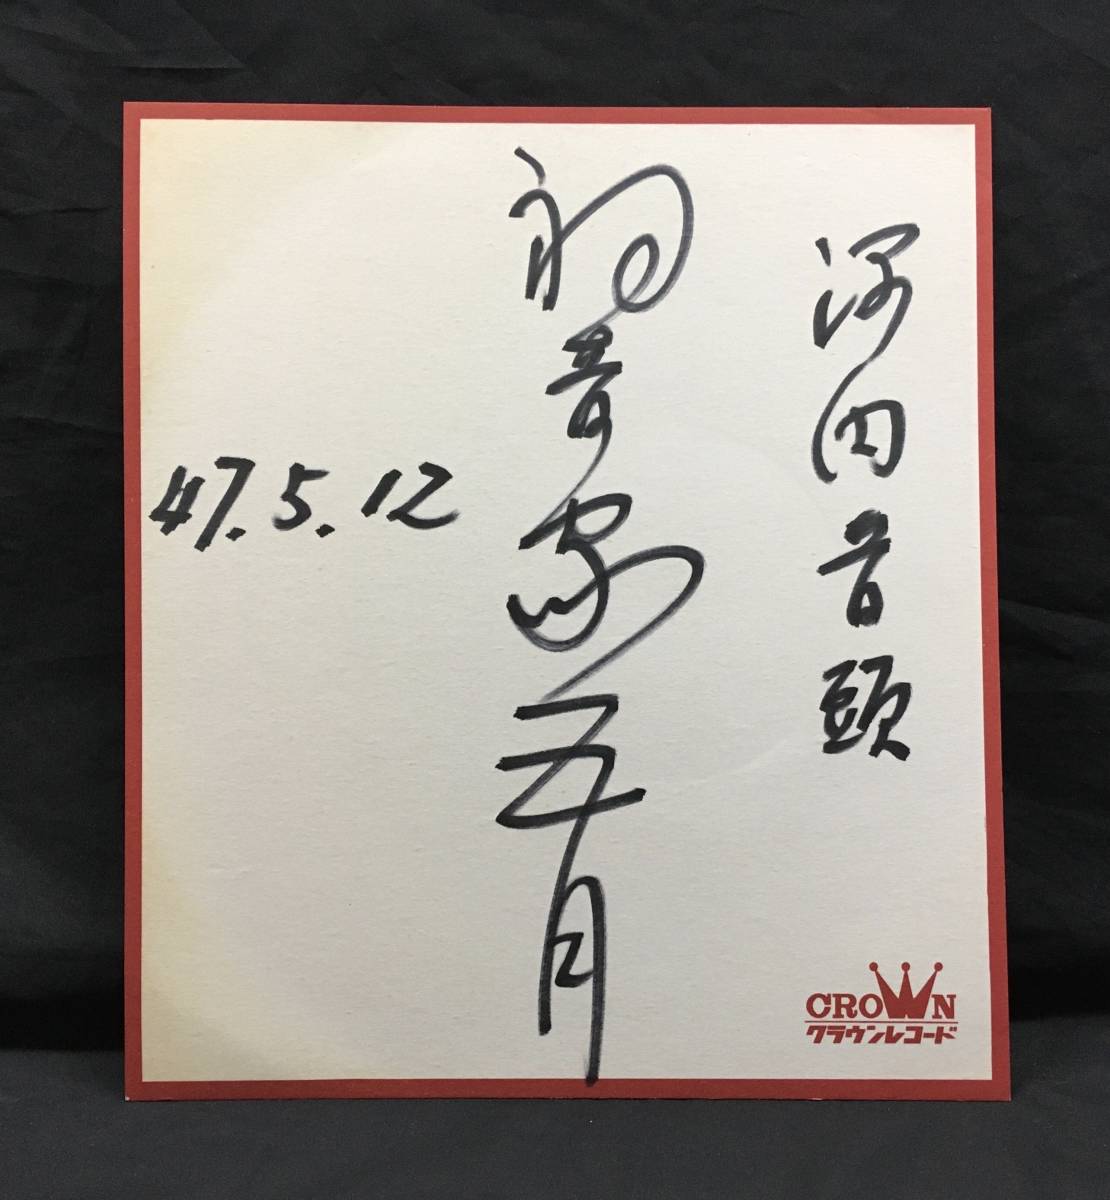 河内音頭
初音家五月
47.5.12
CROWN
クラウンレコード